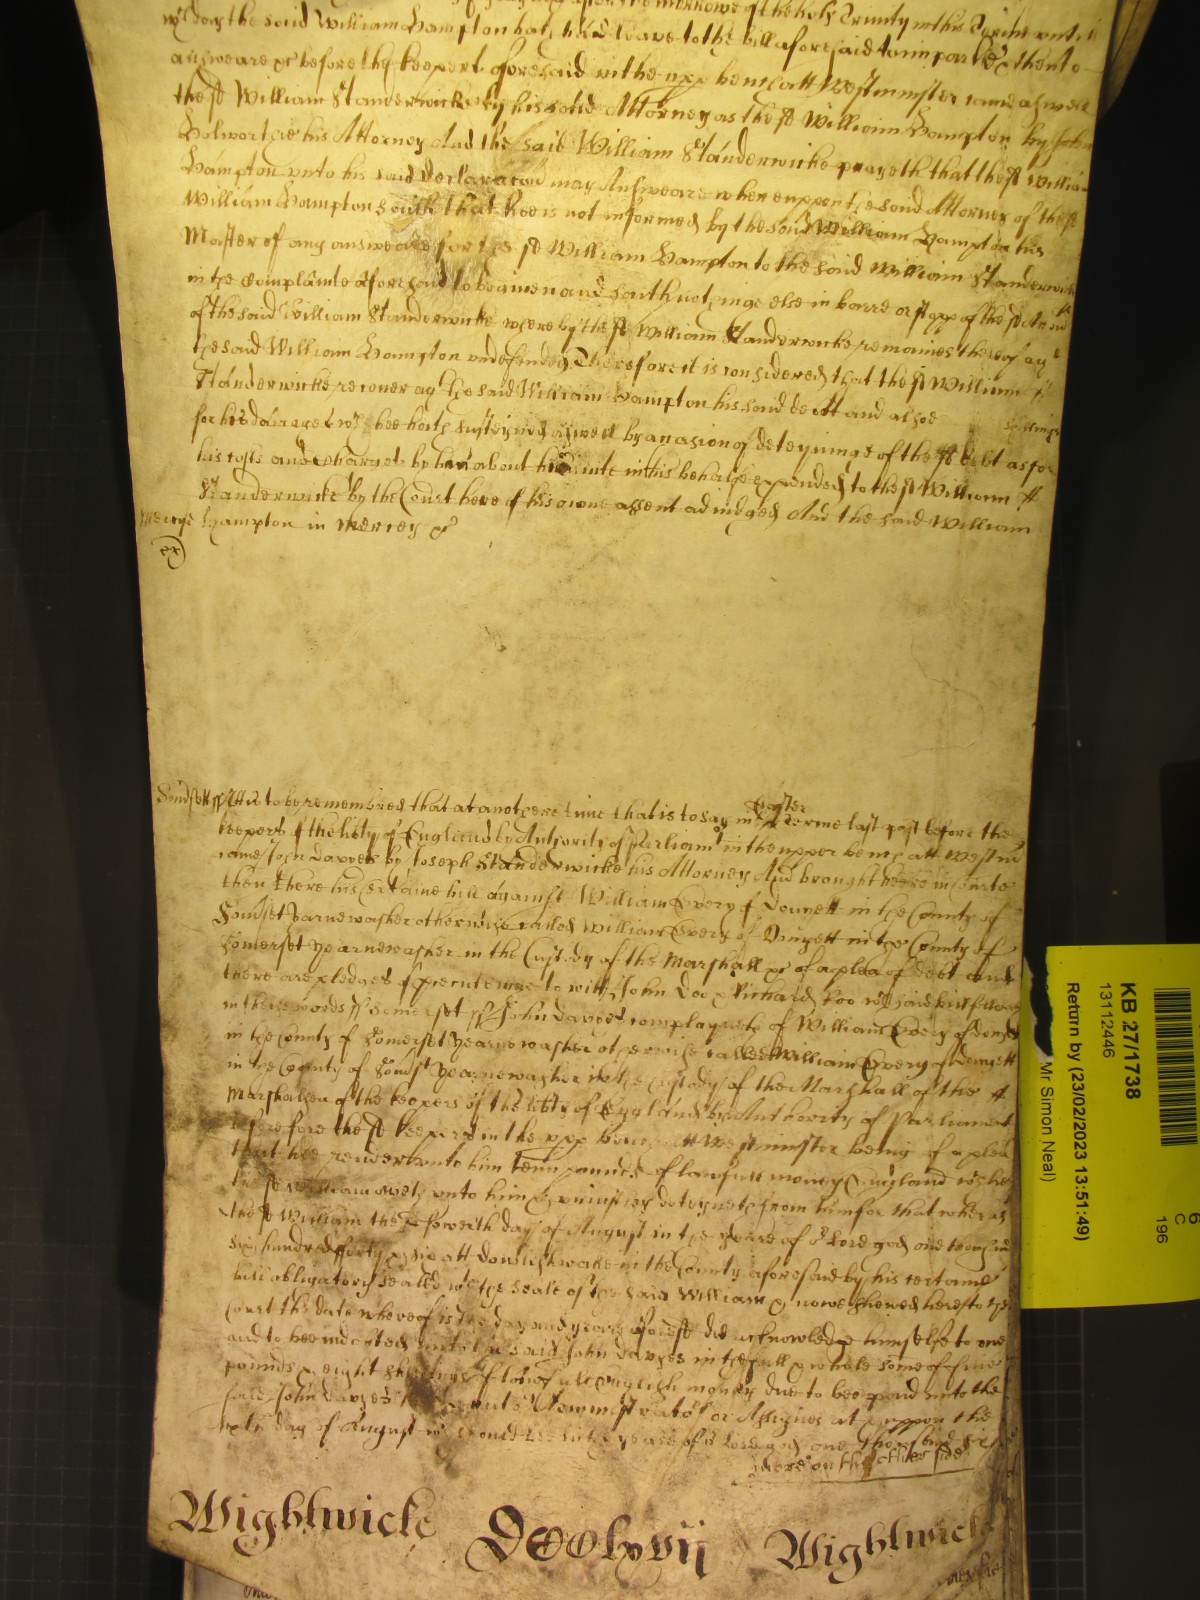 upon the morrowe of the holy Trinity in this Terme untill
wch day the said William Hampton hath had leave to the bill aforesaid to imparle & then to
answeare &c before the keepers aforesaid in the upp bench att Westminster came aswell
the sd William Standerwicke by his said Attorney as the sd William Hampton by John
Holworthie his Attorney And the said William Standerwicke prayeth that the sd William
Hampton unto his said declaracon may Answeare whereuppon the said Attorney of the sd
William Hampton saith that hee is not informed by the said William Hampton his
Master of any answeare for the sd William Hampton to the said William Standerwicke
in the complainte aforesaid to be given and saith nothinge else in barre or stopp of the sd
of the said William Standerwicke whereby the sd William Standerwicke remaines thereof agt
the said William Hampton undefended Therefore it is considered that the sd William
Standerwicke recover agt the said William Hampton his said debt and alsoe shillings
for his damages wch hee hath susteyned aswell by occasion of deteyninge of the sd debt as for
his costs and charges by him about his suite in this behalfe expended to the sd William
Standerwicke by the Court here of his owne assent adiudged And the said William
Hampton in mercy &c
Somsett ss Itt is to be remembred that at another time that is to say in Easter Terme last past before the
keepers of the liberty of England by Authority of Parliamt in the upper bench att Westmr
came John Davyes by Joseph Standerwicke his Attorney And brought heere in Courte
then there his certaine bill against William Every of Donyett in the County of
Somset Yarnewasher otherwise called William Every of Dunyett in the County of
Somerset Yearnewasher in the Custody of the Marshall &c of a plea of debt and
there are pledges of prosecution to witt John Doo & Richard Roo wch said bill followes
in these words ss Somerset ss John Davyes complayneth of William Every of
in the County of Somerset Yearnewasher otherwise called William Every of
in the County of Somst Yearnewasher in the Custody of the Marshall of the
Marshalsea of the keepers of the liberty of England by Authority of Parliament
before the sd keepers in the upp bench att Westminster being of a plea
that hee render unto him tenn pounds of lawfull money of England which
the sd William oweth unto him & uniustly deteyneth from him for that whereas
the sd William the day of August in the yeare of or Lord god one thousand
six hundred forty & att Dowlishwake in the County aforesaid by his certaine
bill obligatory sealed wth the seale of the said William & nowe shewed here to the
Court the date whereof is the day and yeare aforesd did acknowledge himselfe to owe
and to bee indebted unto the said John Davyes in the full & whole some of five
pounds & eight shillings of lawfull English money due to bee paid unto the
said John Davyes his Administrators or Assignes at & uppon the
day of August wch should bee in the yeare of or Lord god one thousand six
more on the other side
Wightwicke DCClxvij Wightwicke
KB 27/1738
1311246
Return by (23/02/2023 13:51:49)
Mr Simon Neal)
196
C